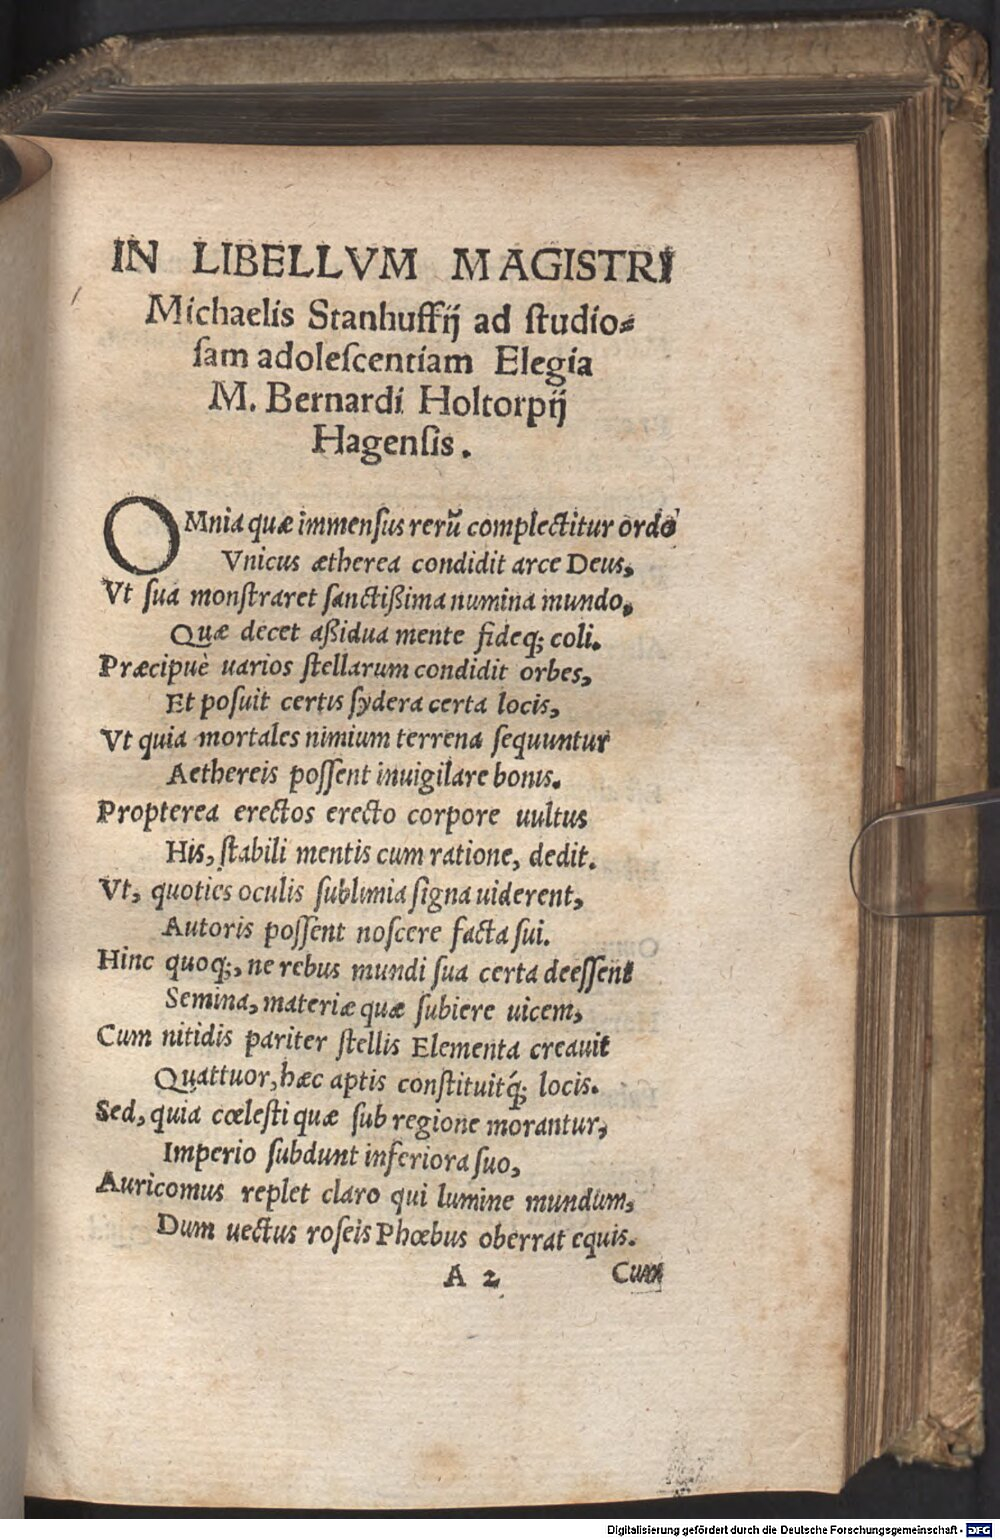 IN LIBELLVM MAGISTRI
Michaelis Stanhuffij ad ſtudio⸗
ſam adoleſcentiam Elegia
M. Bernardi Holtorpij
Hagenſis.
OMnia quæ immenſus rerũ complectitur ordo
Vnicus ætherea condidit arce Deus,
Vt ſua monſtraret ſanctißima numina mundo,
Quæ decet aßidua mente fideq; coli.
Præcipuè uarios ſtellarum condidit orbes,
Et poſuit certis ſydera certa locis,
Vt quia mortales nimium terrena ſequuntur
Aethereis poſſent inuigilare bonis.
Propterea erectos erecto corpore uultus
His, ſtabili mentis cum ratione, dedit.
Vt, quoties oculis ſublimia ſigna uiderent,
Autoris poſſent noſcere facta ſui.
Hinc quoq;, ne rebus mundi ſua certa deeſſent
Semina, materiæ quæ ſubiere uicem,
Cum nitidis pariter ſtellis Elementa creauit
Quattuor, hæc aptis conſtituitq́; locis.
Sed, quia cœleſti quæ ſub regione morantur,
Imperio ſubdunt inferiora ſuo,
Auricomus replet claro qui lumine mundum,
Dum uectus roſeis Phœbus oberrat equis.
A 2 Cum
Digitalisierung gefördert durch die Deutsche Forschungsgemeinschaft - DFG